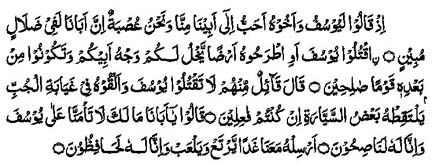 اِذْ قَالُوْا لَيُوْسُفُ وَاَخُوْهُ اَحَبُّ اِلٰى اَبِيْنَا مِنَّا وَنَحْنُ عُصْبَةٌ اِنَّ اَبَانَا لَفِيْ ضَلَالٍ
مُبِيْنٍ ○ اقْتُلُوْا يُوْسُفَ اَوِ اطْرَحُوْهُ اَرْضًا يَّخْلُ لَكُمْ وَجْهُ اَبِيْكُمْ وَتَكُوْنُوْا مِنْ
بَعْدِهٖ قَوْمًا صٰلِحِيْنَ ○ قَالَ قَآئِلٌ مِنْهُمْ لَا تَقْتُلُوْا يُوْسُفَ وَاَلْقُوْهُ فِيْ غَيَابَةِ الْجُبِّ
يَلْتَقِطْهُ بَعْضُ السَّيَّارَةِ اِنْ كُنْتُمْ فٰعِلِيْنَ ○ قَالُوْا يَآاَبَانَا مَا لَكَ لَا تَأْمَنَّا عَلٰى يُوْسُفَ
وَاِنَّا لَهٗ لَنَاصِحُوْنَ ○ اَرْسِلْهُ مَعَنَا غَدًا يَّرْتَعْ وَيَلْعَبْ وَاِنَّا لَهٗ لَحَافِظُوْنَ ○